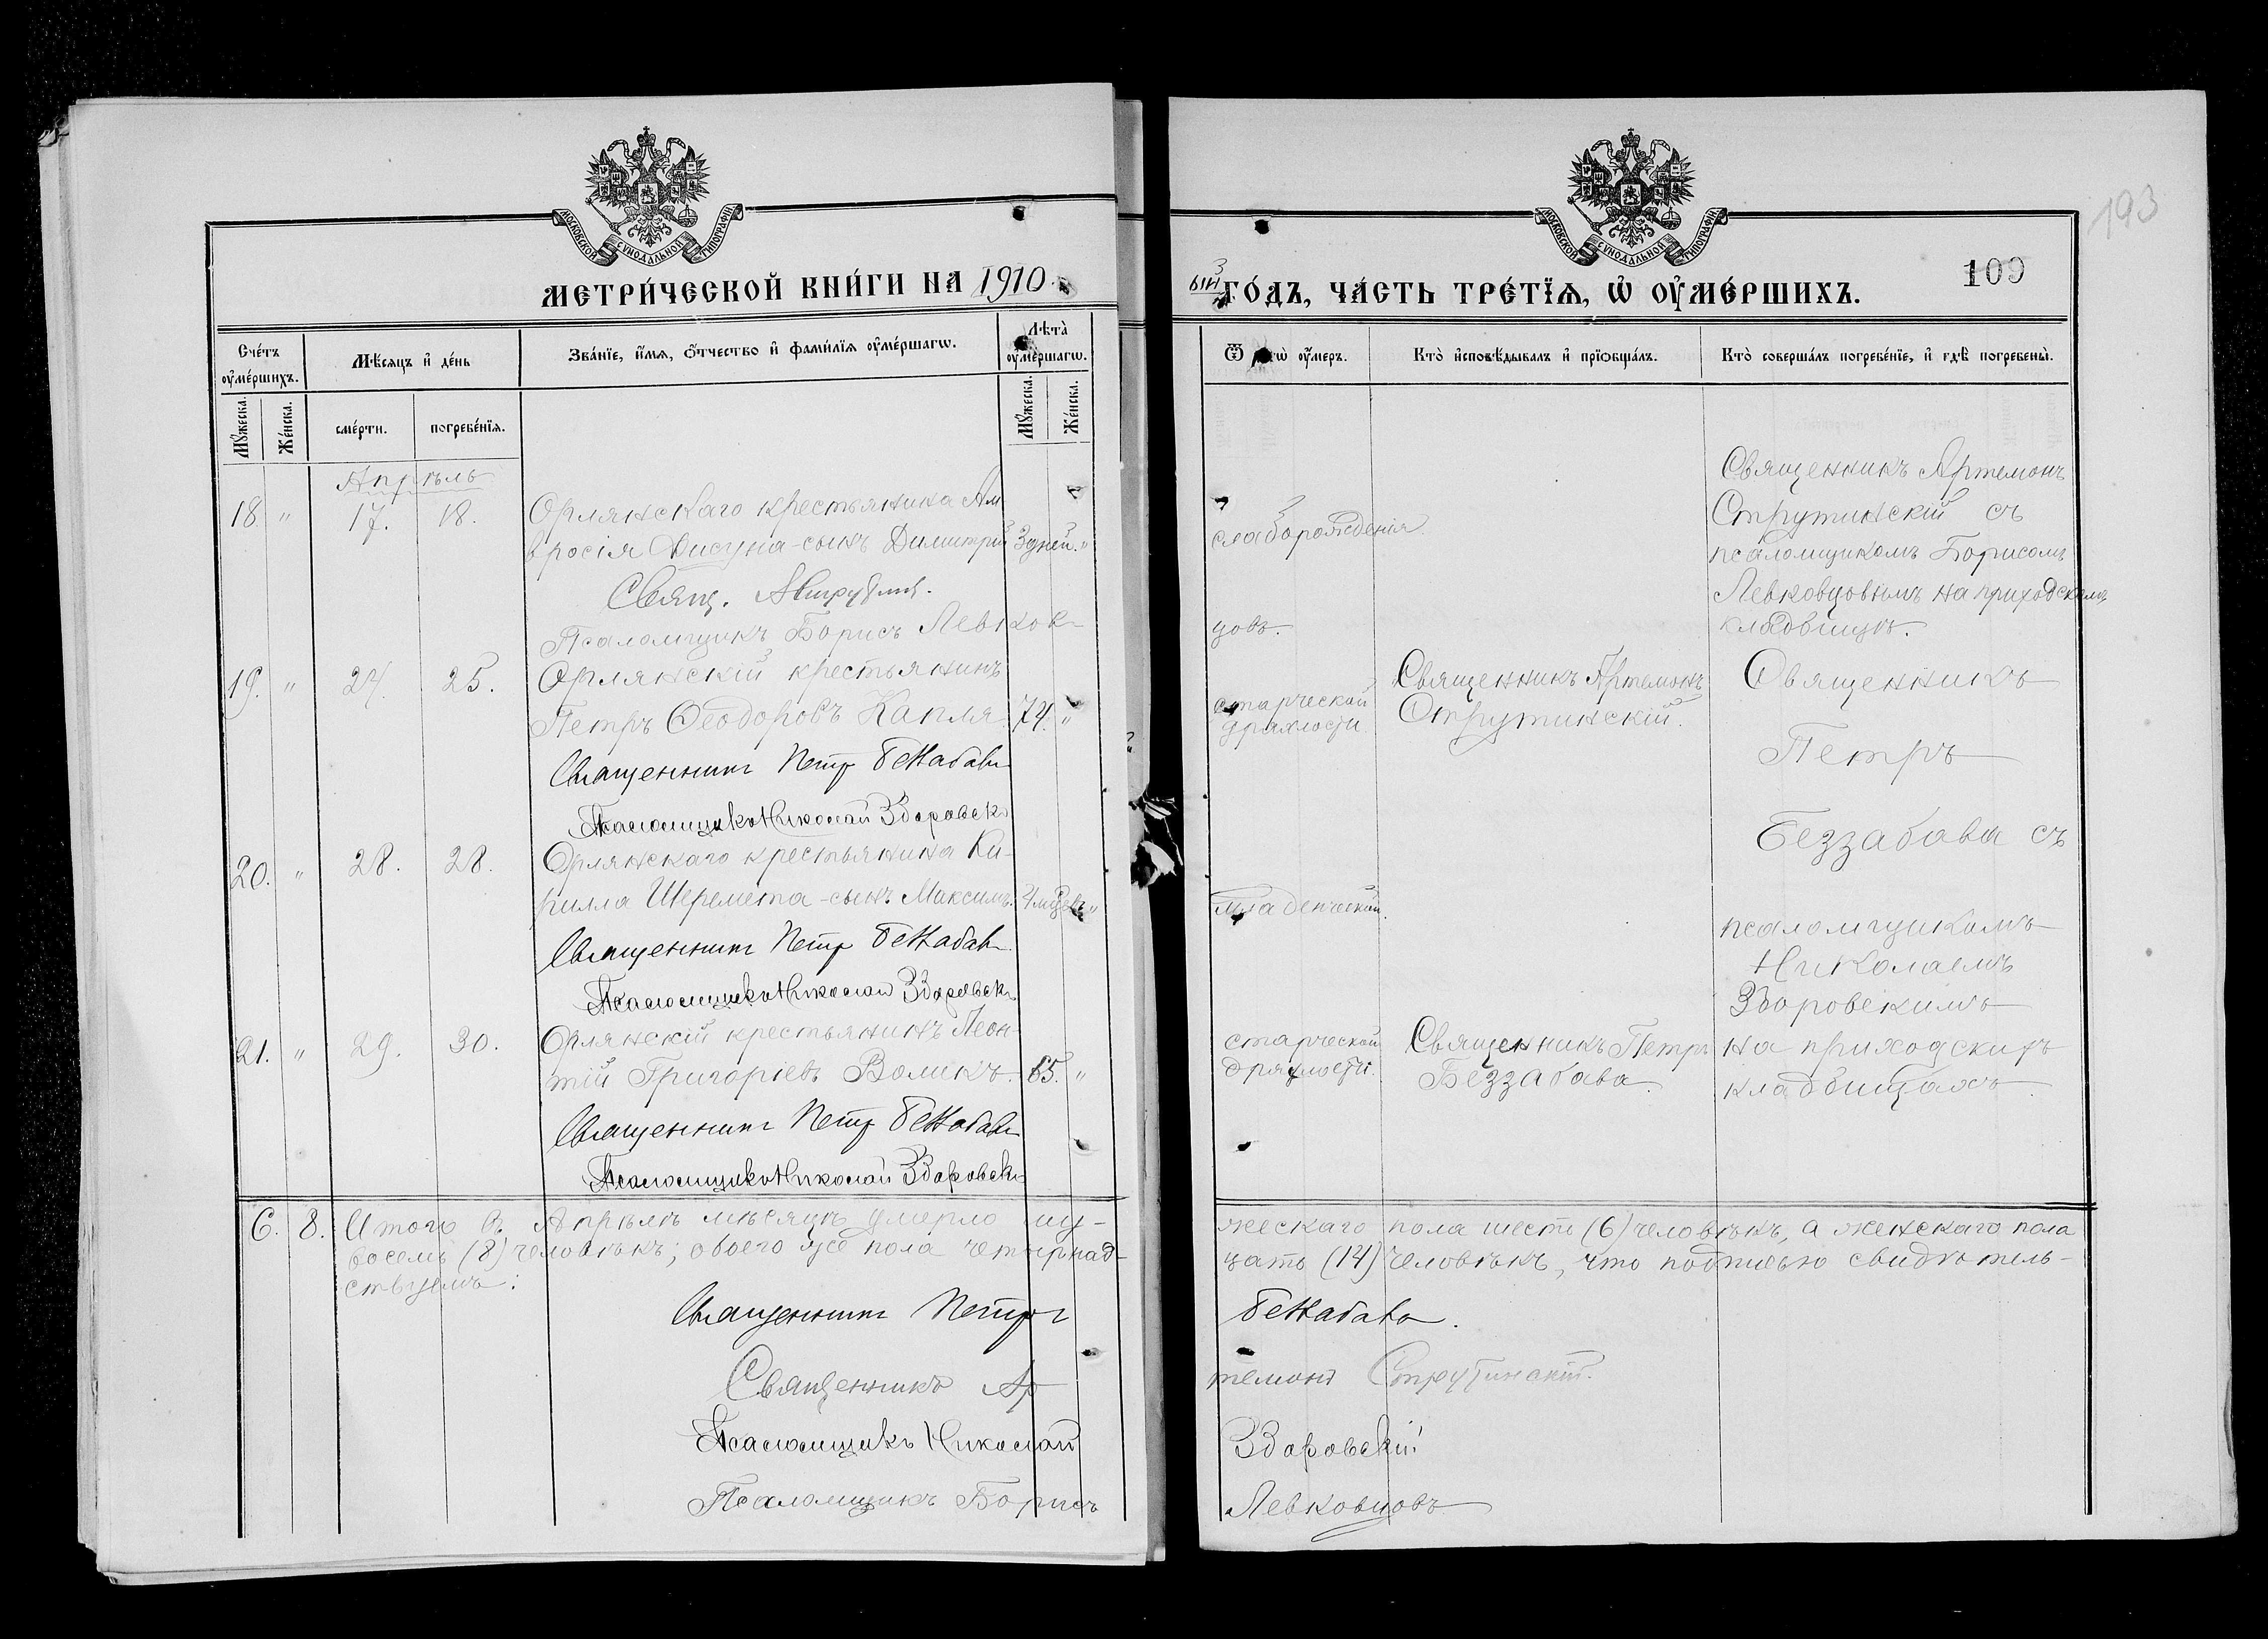 193
109
МОСКОВСКОЙ СѴНОДАЛЬНОЙ ТИПОГРАФІИ
МОСКОВСКОЙ СѴНОДАЛЬНОЙ ТИПОГРАФІИ
МЕТРИ́ЧЕСКОЙ КНИ́ГИ НА 1910.
ый ГО́ДЪ, ЧА́СТЬ ТРЕ́ТЇѦ, Ѡ҆ ОУ҆МЕ́РШИХЪ.
Сче́тъ оу҆ме́ршихъ.
Мѣ́сѧцъ и҆ де́нь
Зва́нїе, и҆́мѧ, ѻ҆́тчество и҆ фами́лїѧ оу҆ме́ршагѡ.
Лѣта̀ оу҆ме́ршагѡ.
оу҆́меръ.
Кто̀ и҆сповѣ́дывалъ и҆ прїѡбща́лъ.
Кто̀ соверша́лъ погребе́нїе, и҆ гдѣ̀ погребены̀.
Мꙋ́жеска.
Же́нска.
сме́рти.
погребе́нїѧ.
Мꙋ́жеска.
Же́нска.
Апрѣль
18. " 17. 18. Орлянскаго крестьянина Ам
вросія Дисуна - сынъ Димитрій 3 дней. "
Свящ.
Псаломщикъ Борисъ Левков-
цовъ.
слаборожденія
Священникъ Артемонъ
Струтинскій съ
псаломщикомъ Борисомъ
Левковцовымъ на приходскомъ
кладбищѣ.
19. " 24. 25. Орлянскій крестьянинъ
Петръ Ѳеодоровъ Капля 74. "
Священникъ Петръ Беззабава
Псаломщикъ Николай Здоровск
старческой
дряхлости
Священникъ Артемонъ
Струтинскій.
Священникъ
Петръ
Беззабава съ
20. " 28. 28. Орлянскаго крестьянина Ки-
рилла Шеремета - сынъ Максимъ. 4 мѣсяц. "
Священникъ Петръ Беззабава
Псаломщикъ Николай Здоровск
младенческой.
псаломщикомъ
Николаемъ
Здоровскимъ
21. " 29. 30. Орлянскій крестьянинъ Леон-
тій Григоріевъ Воликъ. 65. "
Священникъ Петръ Беззабава
Псаломщикъ Николай Здоровск
старческой
дряхлости.
Священникъ Петръ
Беззабава
на приходскихъ
кладбищахъ.
6. 8. Итого въ Апрѣлѣ мѣсяцѣ умерло му-
жескаго пола шесть (6) человѣкъ, а женскаго пола
восемь (8) человѣкъ; обоего же пола четырнад-
цать (14) человѣкъ, что подписью свидѣтель-
ствуемъ:
Священникъ Петръ Беззабава.
Священникъ Ар темонъ Струтинскій.
Псаломщикъ Николай Здоровскій
Псаломщикъ Борисъ Левковцовъ